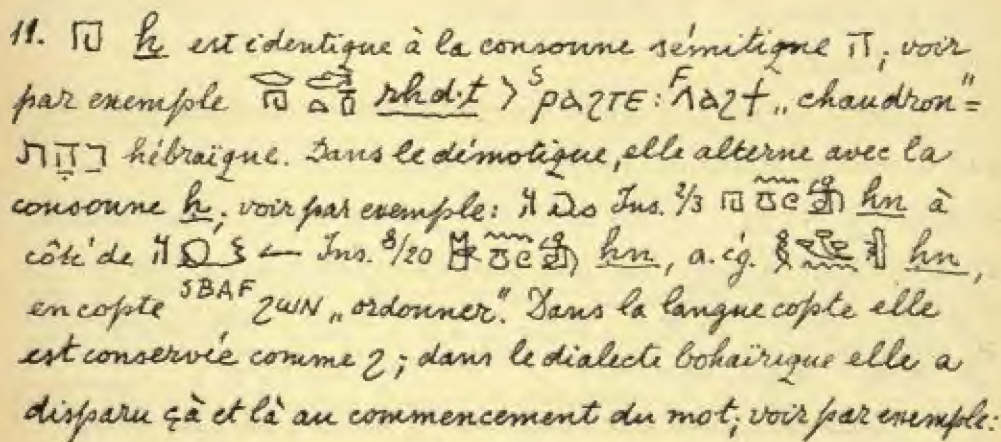 11. 𓉔 h est identique à la consonne sémitique ה; voir
par exemple rhd·t > S ⲣⲁϩⲧⲉ : F ⲗⲁϩϯ „chaudron" =
hébraïque. Dans le démotique, elle alterne avec la
consonne ḥ; voir par exemple: Ins. 2/3 hn à
côté de Ins. 8/20 ḥn, a. ég. ḥn,
en copte SBAF ϩⲱⲛ „ordonner". Dans la langue copte elle
est conservée comme ϩ; dans le dialecte bohaïrique elle a
disparu çà et là au commencement du mot; voir par exemple: